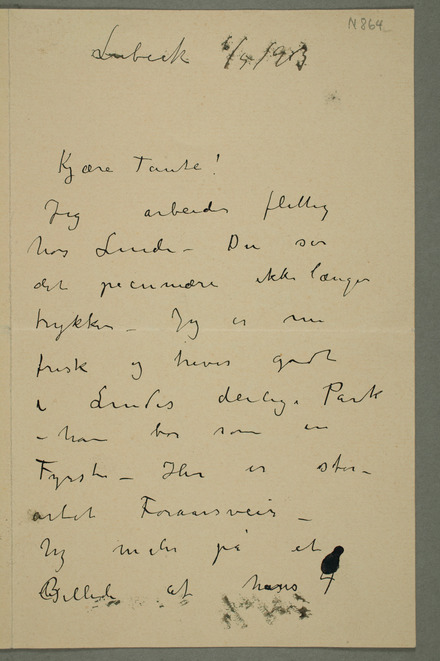 N 864
Lubeck 6/4/903
Kjære Tante!
Jeg arbeider flittig
hos Linde – Du ser
det pecuniære ikke længer
trykker – Jeg er nu
frisk og trives godt
i Lindes deilige Park
– han bor som en
Fyrste – Her er stor-
artet Foraarsveir –
Jeg maler på et
Billede af hans 4